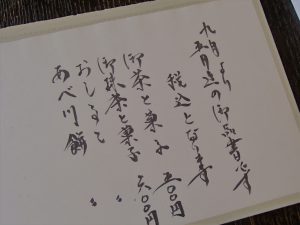 九月より
五月迄の御品書です
税込となります
御茶と菓子 五〇〇円
御抹茶と菓子 六〇〇円
おしるこ 〃
あべ川餅 〃